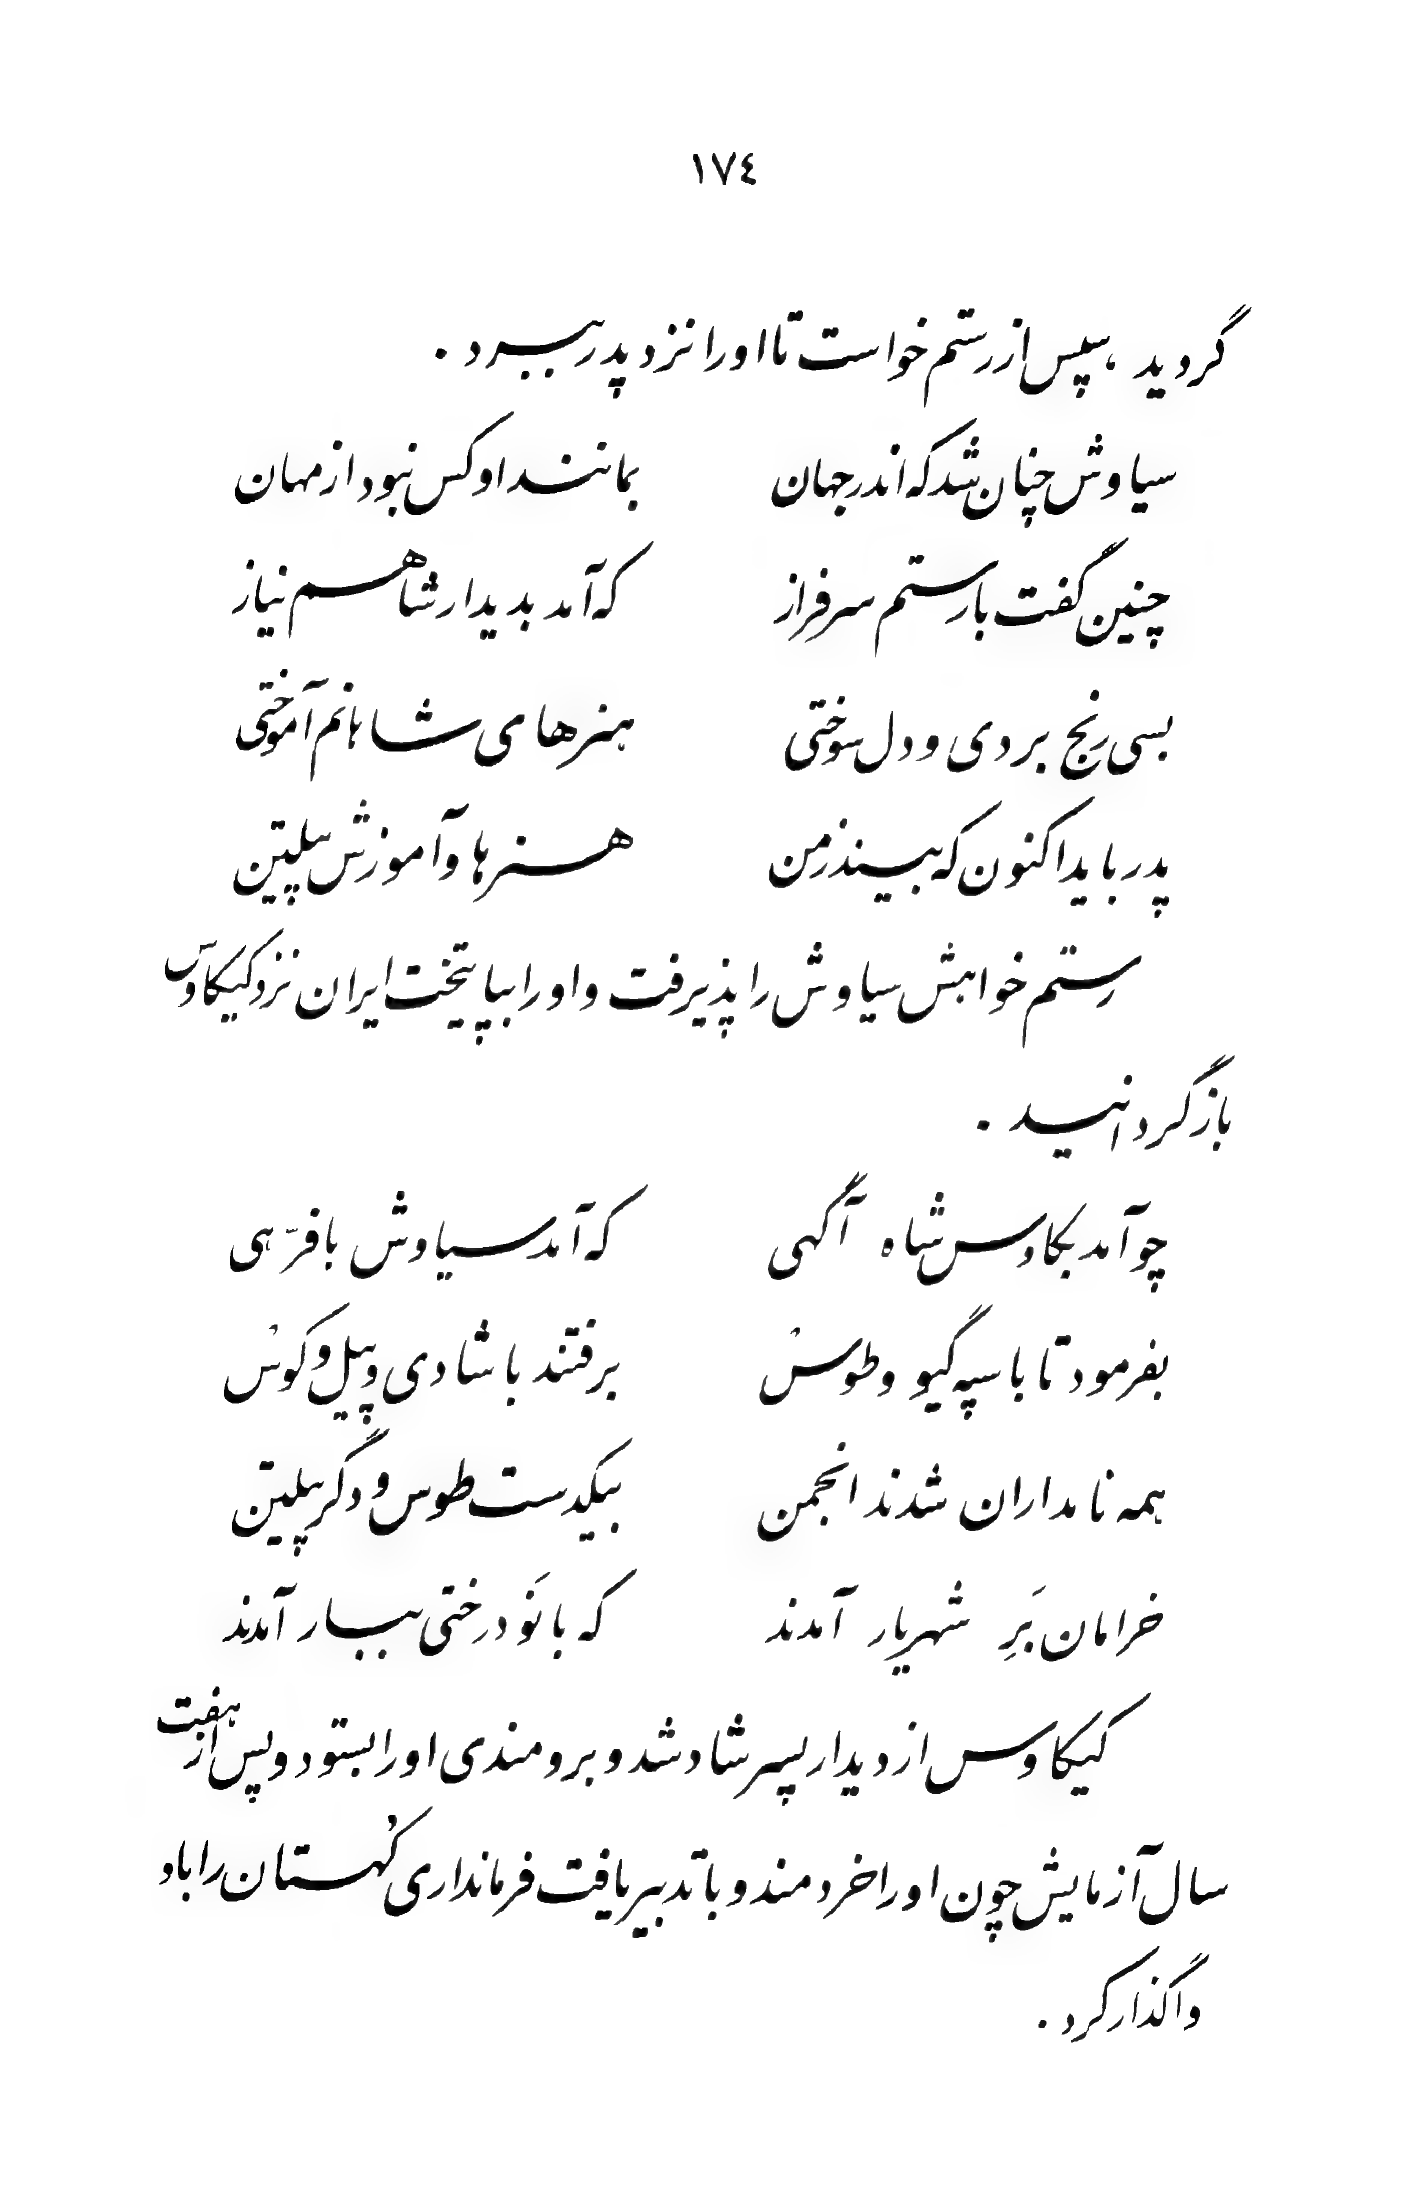 ١٧٤
گردید ، سپس از رستم خواست تا او را نزد پدر ببرد .
سیاوش چنان شد که اندر جهان بمانند او کس نبود از مهان
چنین گفت با رستم سرفراز که آمد بدیدار شاهم نیاز
بسی رنج بردی و دل سوختی هنرهای شاهانم آموختی
پدر باید اکنون که بیند ز من هنرها و آموزش پیلتن
رستم خواهش سیاوش را پذیرفت و او را بپایتخت ایران نزد کیکاوس
بازگردانید .
چو آمد بکاوس شاه آگهی که آمد سیاوش با فرّهی
بفرمود تا با سپه گیو و طوس برفتند با شادی و پیل و کوس
همه نامداران شدند انجمن بیکدست طوس و دگر پیلتن
خرامان بَرِ شهریار آمدند که با نَو درختی ببار آمدند
کیکاوس از دیدار پسر شاد شد و برومندی او را بستود و پس از هفت
سال آزمایش چون او را خردمند و با تدبیر یافت فرمانداری کُهستان را باو
واگذار کرد .